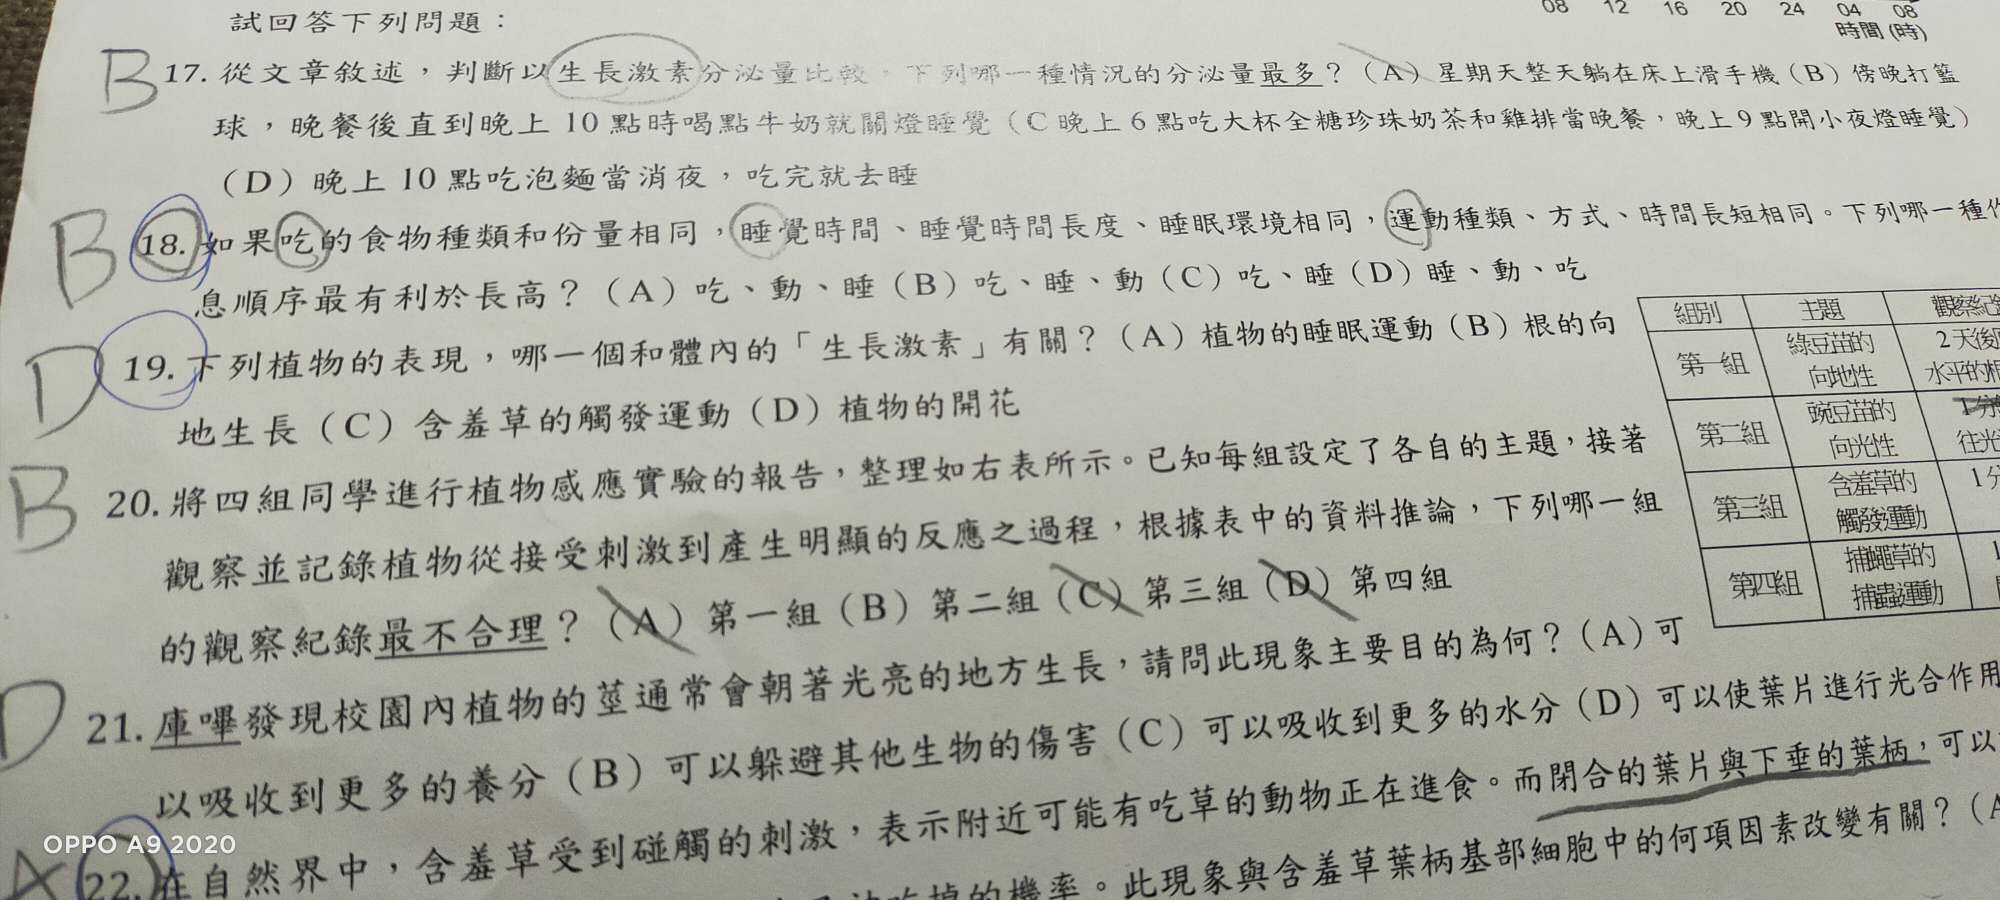 08 12 16 20 24 04 08
時間(時)
試回答下列問題：
B 17. 從文章敘述，判斷以生長激素分泌量比較，下列哪一種情況的分泌量最多？（A）星期天整天躺在床上滑手機（B）傍晚打籃
球，晚餐後直到晚上 10 點時喝點牛奶就關燈睡覺（C 晚上 6 點吃大杯全糖珍珠奶茶和雞排當晚餐，晚上 9 點開小夜燈睡覺）
（D）晚上 10 點吃泡麵當消夜，吃完就去睡
B 18. 如果吃的食物種類和份量相同，睡覺時間、睡覺時間長度、睡眠環境相同，運動種類、方式、時間長短相同。下列哪一種作
息順序最有利於長高？（A）吃、動、睡（B）吃、睡、動（C）吃、睡（D）睡、動、吃
D 19. 下列植物的表現，哪一個和體內的「生長激素」有關？（A）植物的睡眠運動（B）根的向
地生長（C）含羞草的觸發運動（D）植物的開花
B 20. 將四組同學進行植物感應實驗的報告，整理如右表所示。已知每組設定了各自的主題，接著
觀察並記錄植物從接受刺激到產生明顯的反應之過程，根據表中的資料推論，下列哪一組
的觀察紀錄最不合理？（A）第一組（B）第二組（C）第三組（D）第四組
組別 主題 觀察紀錄
第一組 綠豆苗的 2 天後
向地性 水平的根
第二組 豌豆苗的 1 分
向光性 往光
第三組 含羞草的 1 分
觸發運動
第四組 捕蠅草的 1
捕蟲運動
D 21. 庫嗶發現校園內植物的莖通常會朝著光亮的地方生長，請問此現象主要目的為何？（A）可
以吸收到更多的養分（B）可以躲避其他生物的傷害（C）可以吸收到更多的水分（D）可以使葉片進行光合作用
A 22. 在自然界中，含羞草受到碰觸的刺激，表示附近可能有吃草的動物正在進食。而閉合的葉片與下垂的葉柄，可以
的機率。此現象與含羞草葉柄基部細胞中的何項因素改變有關？（A
OPPO A9 2020